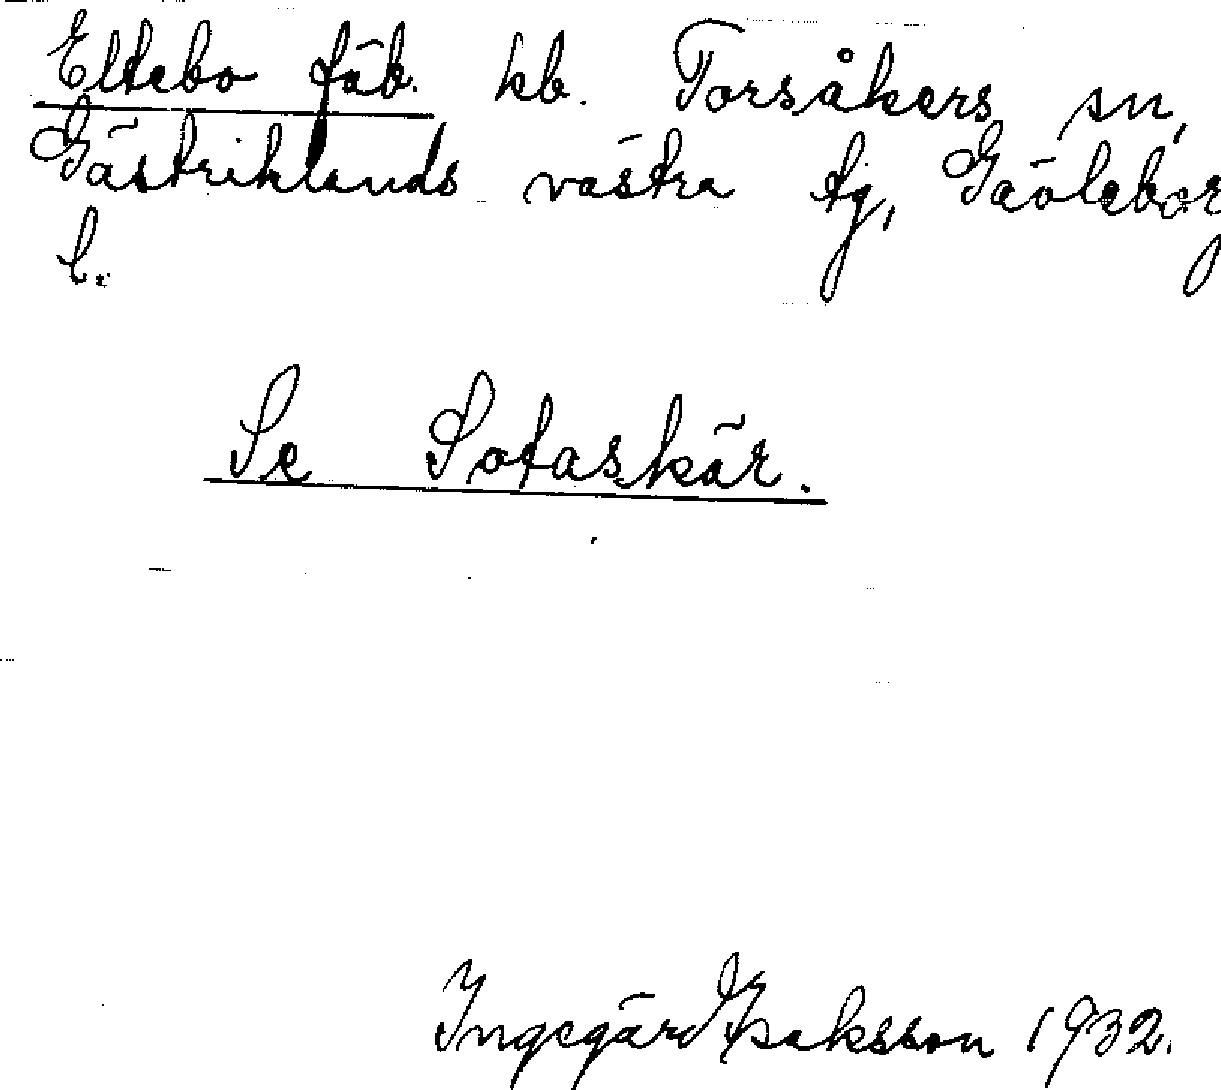 Eltebo fäb. kb. Torsåkers sn,
Gästriklands västra tg, Gävleborg
l.
Se Sotaskär.
Ingegärd Isaksson 1932.